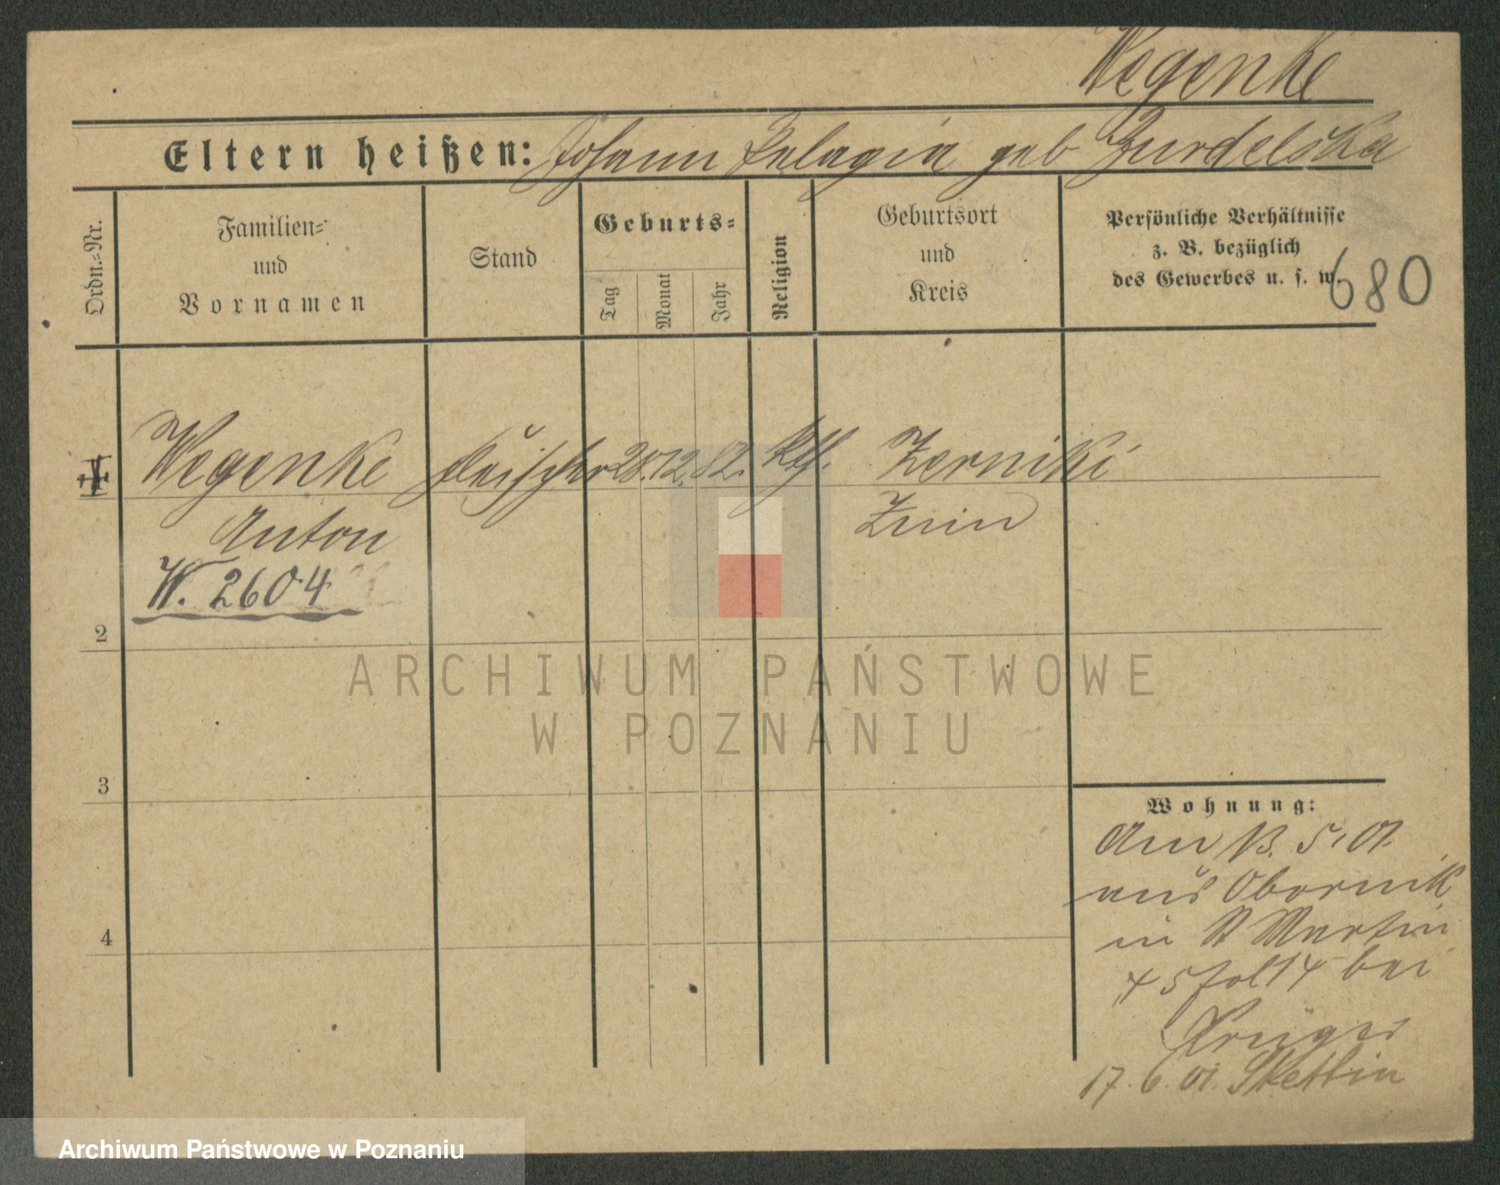 Wegenke
Eltern heißen: Johann Pelagia geb Zurdelska
Ordn.-Nr.
Familien-
und
Vornamen
Stand
Geburts-
Tag
Monat
Jahr
Religion
Geburtsort
und
Kreis
Persönliche Verhältnisse
z. B. bezüglich
des Gewerbes u. s. w.
680
Wegenke Fleischer 28. 12. 82. Kth. Zerniki
Anton Znin
W. 2604
2
3
4
Wohnung:
Am 13. 5. 01.
aus Obornik
in St Martin
45 bei
Krüger
17. 6. 01. Stettin
ARCHIWUM PAŃSTWOWE
W POZNANIU
Archiwum Państwowe w Poznaniu